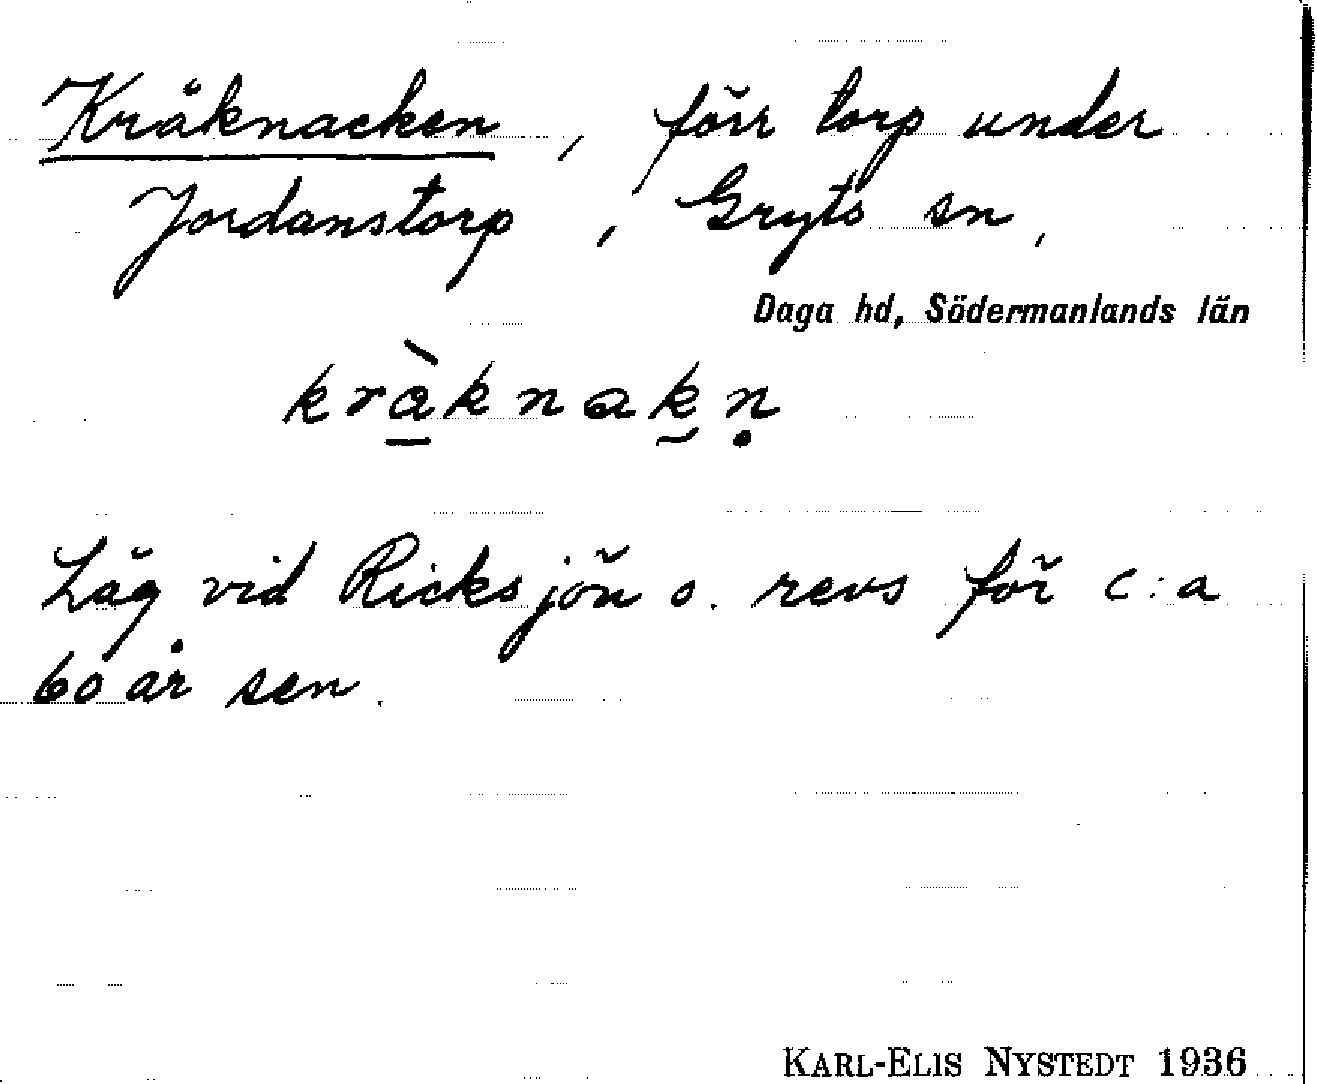 Kråknacken, förr torp under
Jordanstorp, Gryts sn,
Daga hd, Södermanlands län
kràknakn
Låg vid Ricksjön o. revs för c:a
60 år sen.
KARL-ELIS NYSTEDT 1936